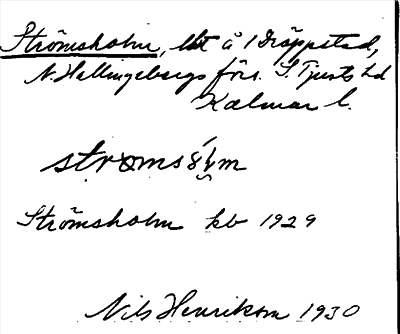 Strömsholm, lht å 1 Dräppstad,
N. Hallingebergs förs. S. Tjusts hd
Kalmar l.
Strömsholm kb 1929
Nils Henrikson 1930